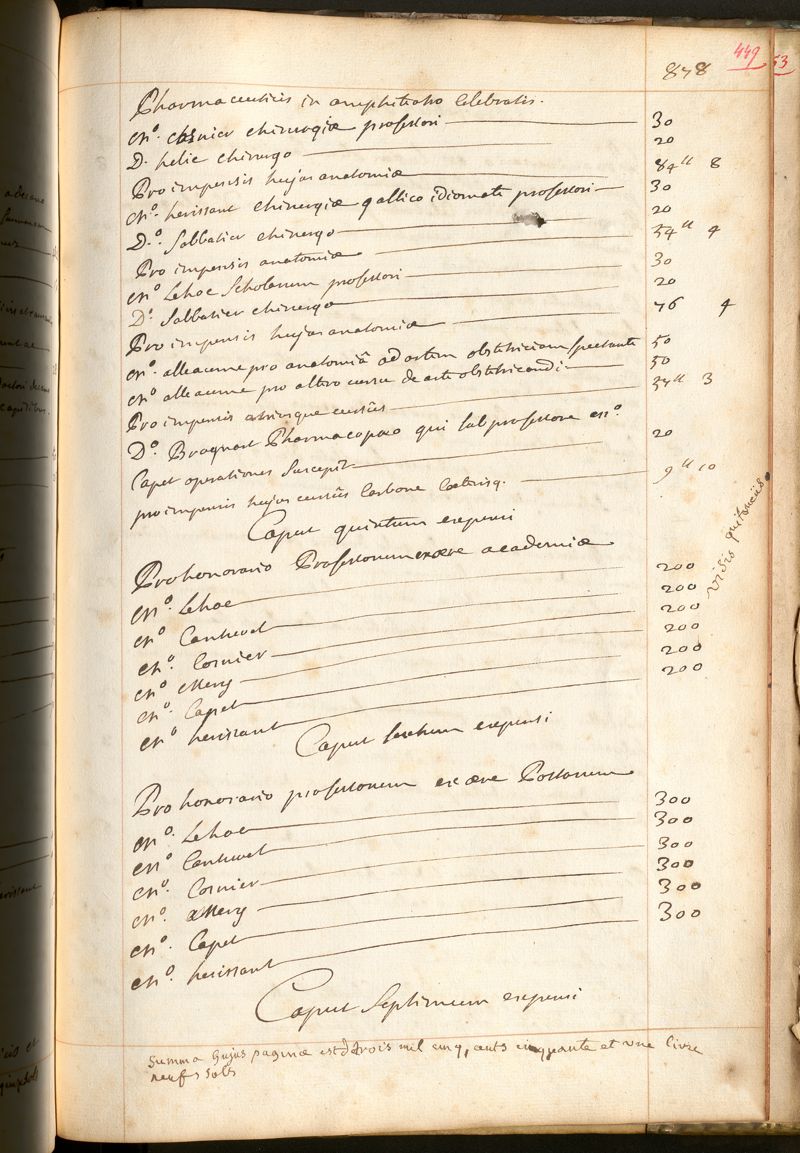 449
53
878
Pharmaceuticis in amphitheatro celebratis.
Mo. Cosnier chirurgiæ professori 30
D. helie chirurgo 20
Pro impensis hujus anatomiæ 84ᵗᵗ 8
Mo. herissant chirurgiæ gallico idiomate professori 30
Do. Sabbatier chirurgo 20
Pro impensis anatomiæ 54ᵗᵗ 4
Mo Lehoc Scholarum professori 30
Do. Sabbatier chirurgo 20
Pro impensis hujus anatomiæ 76 4
Mo. alleaume pro anatomiâ ad artem obstetriciam spectante 50
Mo alleaume pro altero cursu de arte obstetricandi 50
Pro impensis utriusque cursûs 37ᵗᵗ 3
Do. Braquart Pharmacopæo qui sub professore Mo.
Capet operationes suscepit 20
pro impensis hujus cursûs carbone cæterisq. 9ᵗᵗ 10
Caput quintum expensi
Pro honorario Professorum ex ære academiæ
Mo. Lehoc 200
Mo. Cantwel 200
Mo. Cosnier 200
Mo Mery 200
Mo. Capet 200
Mo herissant 200
Caput sextum expensi
Pro honorario professorum ex ære Postarum
Mo. Lehoc 300
Mo Cantwel 300
Mo. Cosnier 300
Mo. Mery 300
Mo. Capet 300
Mo. herissant 300
Caput Septimum expensi
Summa hujus paginæ est de trois mil cinq cents cinquante et une livre
neufs sols
visis quitanciis